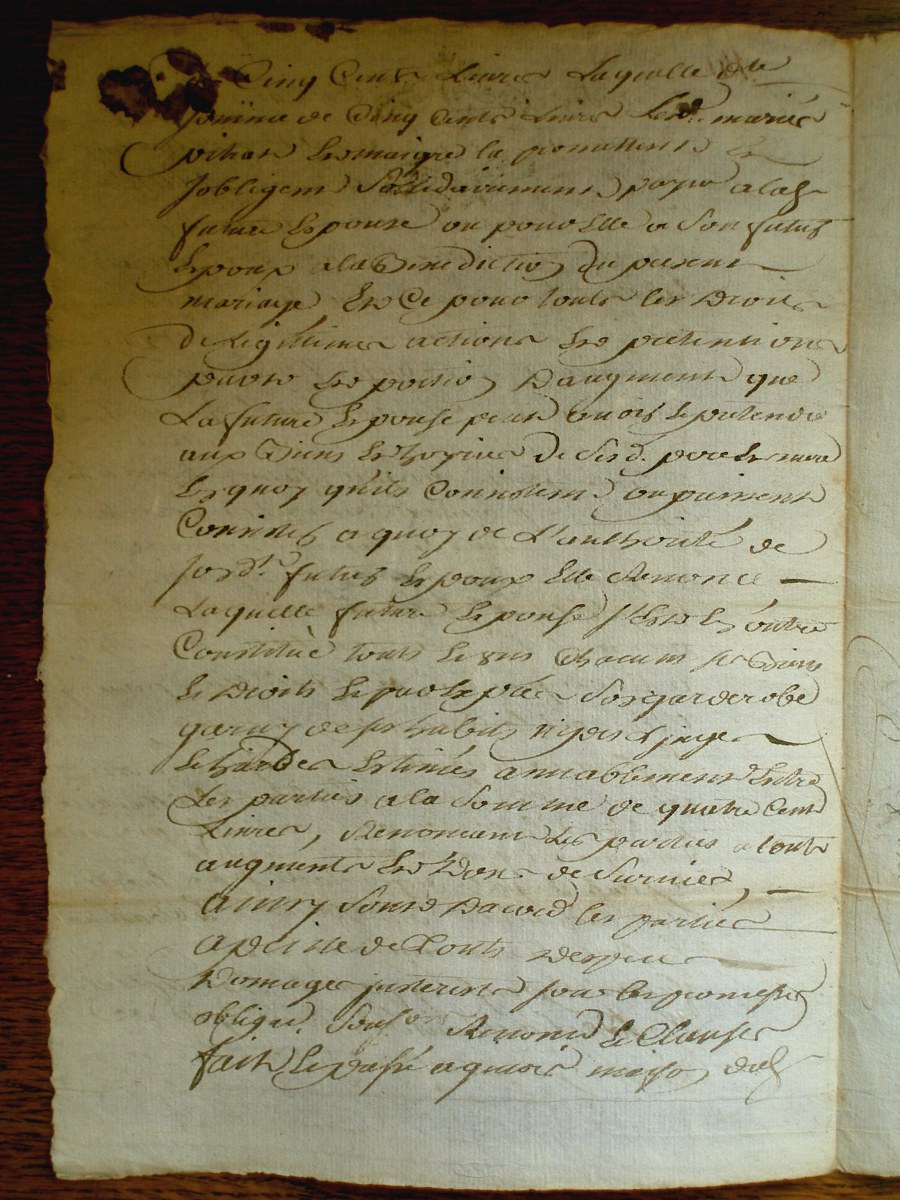 Cinq Cents Livres Laquelle dte
somme de Cinq Cents Livres Lesd. mariés
pihat Et maigre la promettent Et
sobligent Sollidairement payer a lad
future Epouse ou pour Elle a Son futur
Epoux a la Benediction du present
mariage Et Ce pour touts les Droits
De Legitimes actions Et pretentions
parts Et portion Daugment que
La future Epouse peut avoir Et pretendre
aux Biens Et hoyries De Sesd. pere Et mere
En quoy quils Consistent ou puissent
Consister a quoy de L'authorité de
sond.t futur Epoux Elle Renonce
Laquelle future Epouse s'Est En outre
Constitué touts Et uns Chacuns ses Biens
Et Droits Et par Exprés Son garderobe
garny de ses habits linges
Et hardes Estimés amiablement Entre
Les parties a la Somme de quatre Cent
Livres, Renonceant Les parties a touts
augments Et Dons de Survies,
ainsy Sont Dacord les parties
a peine de touts Despens
Domages jnterets sous les promesses
obligaõ. Soubson Renonciõ Et Clauses
fait Et passé a maison dud